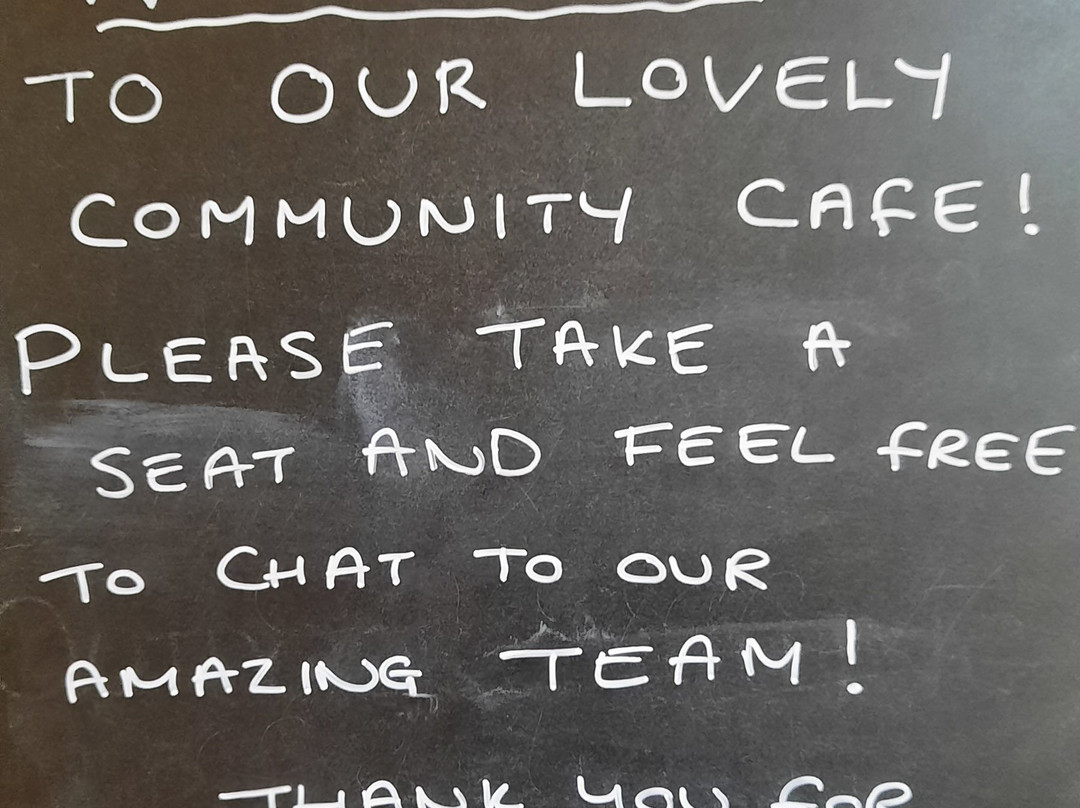 TO OUR LOVELY
COMMUNITY CAFE!
PLEASE TAKE A
SEAT AND FEEL FREE
TO CHAT TO OUR
AMAZING TEAM!
THANK YOU FOR